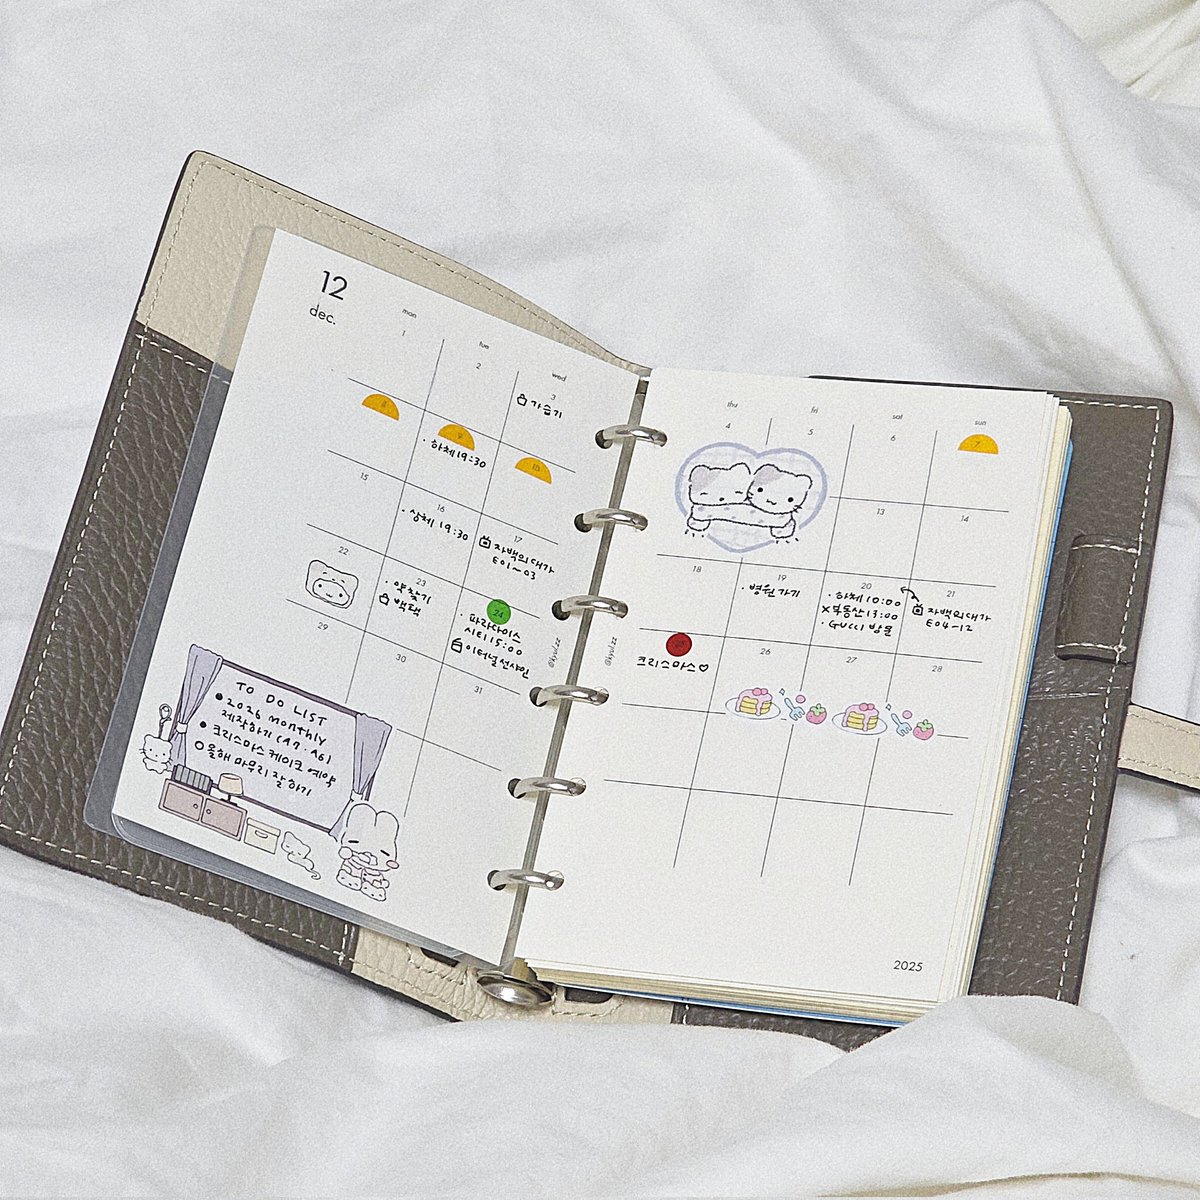 12
dec.
mon
tue
wed
1
2
3
가습기
8
9
하체 19:30
10
15
16
· 상체 19:30
17
자백의 대가
E01~03
22
23
· 약 찾기
백팩
24
· 파라다이스
시티 15:00
이터널 선샤인
29
30
31
TO DO LIST
2026 monthly
제작하기 (A7. A6)
크리스마스 케이크 예약
올해 마무리 잘하기
@kyul.zz
thu
fri
sat
sun
4
5
6
7
13
14
18
19
· 병원 가기
20
· 하체 10:00
X부동산 13:00
· GUCCI 방문
21
자백의 대가
E04-12
@kyul.zz
25
크리스마스♡
26
27
28
2025